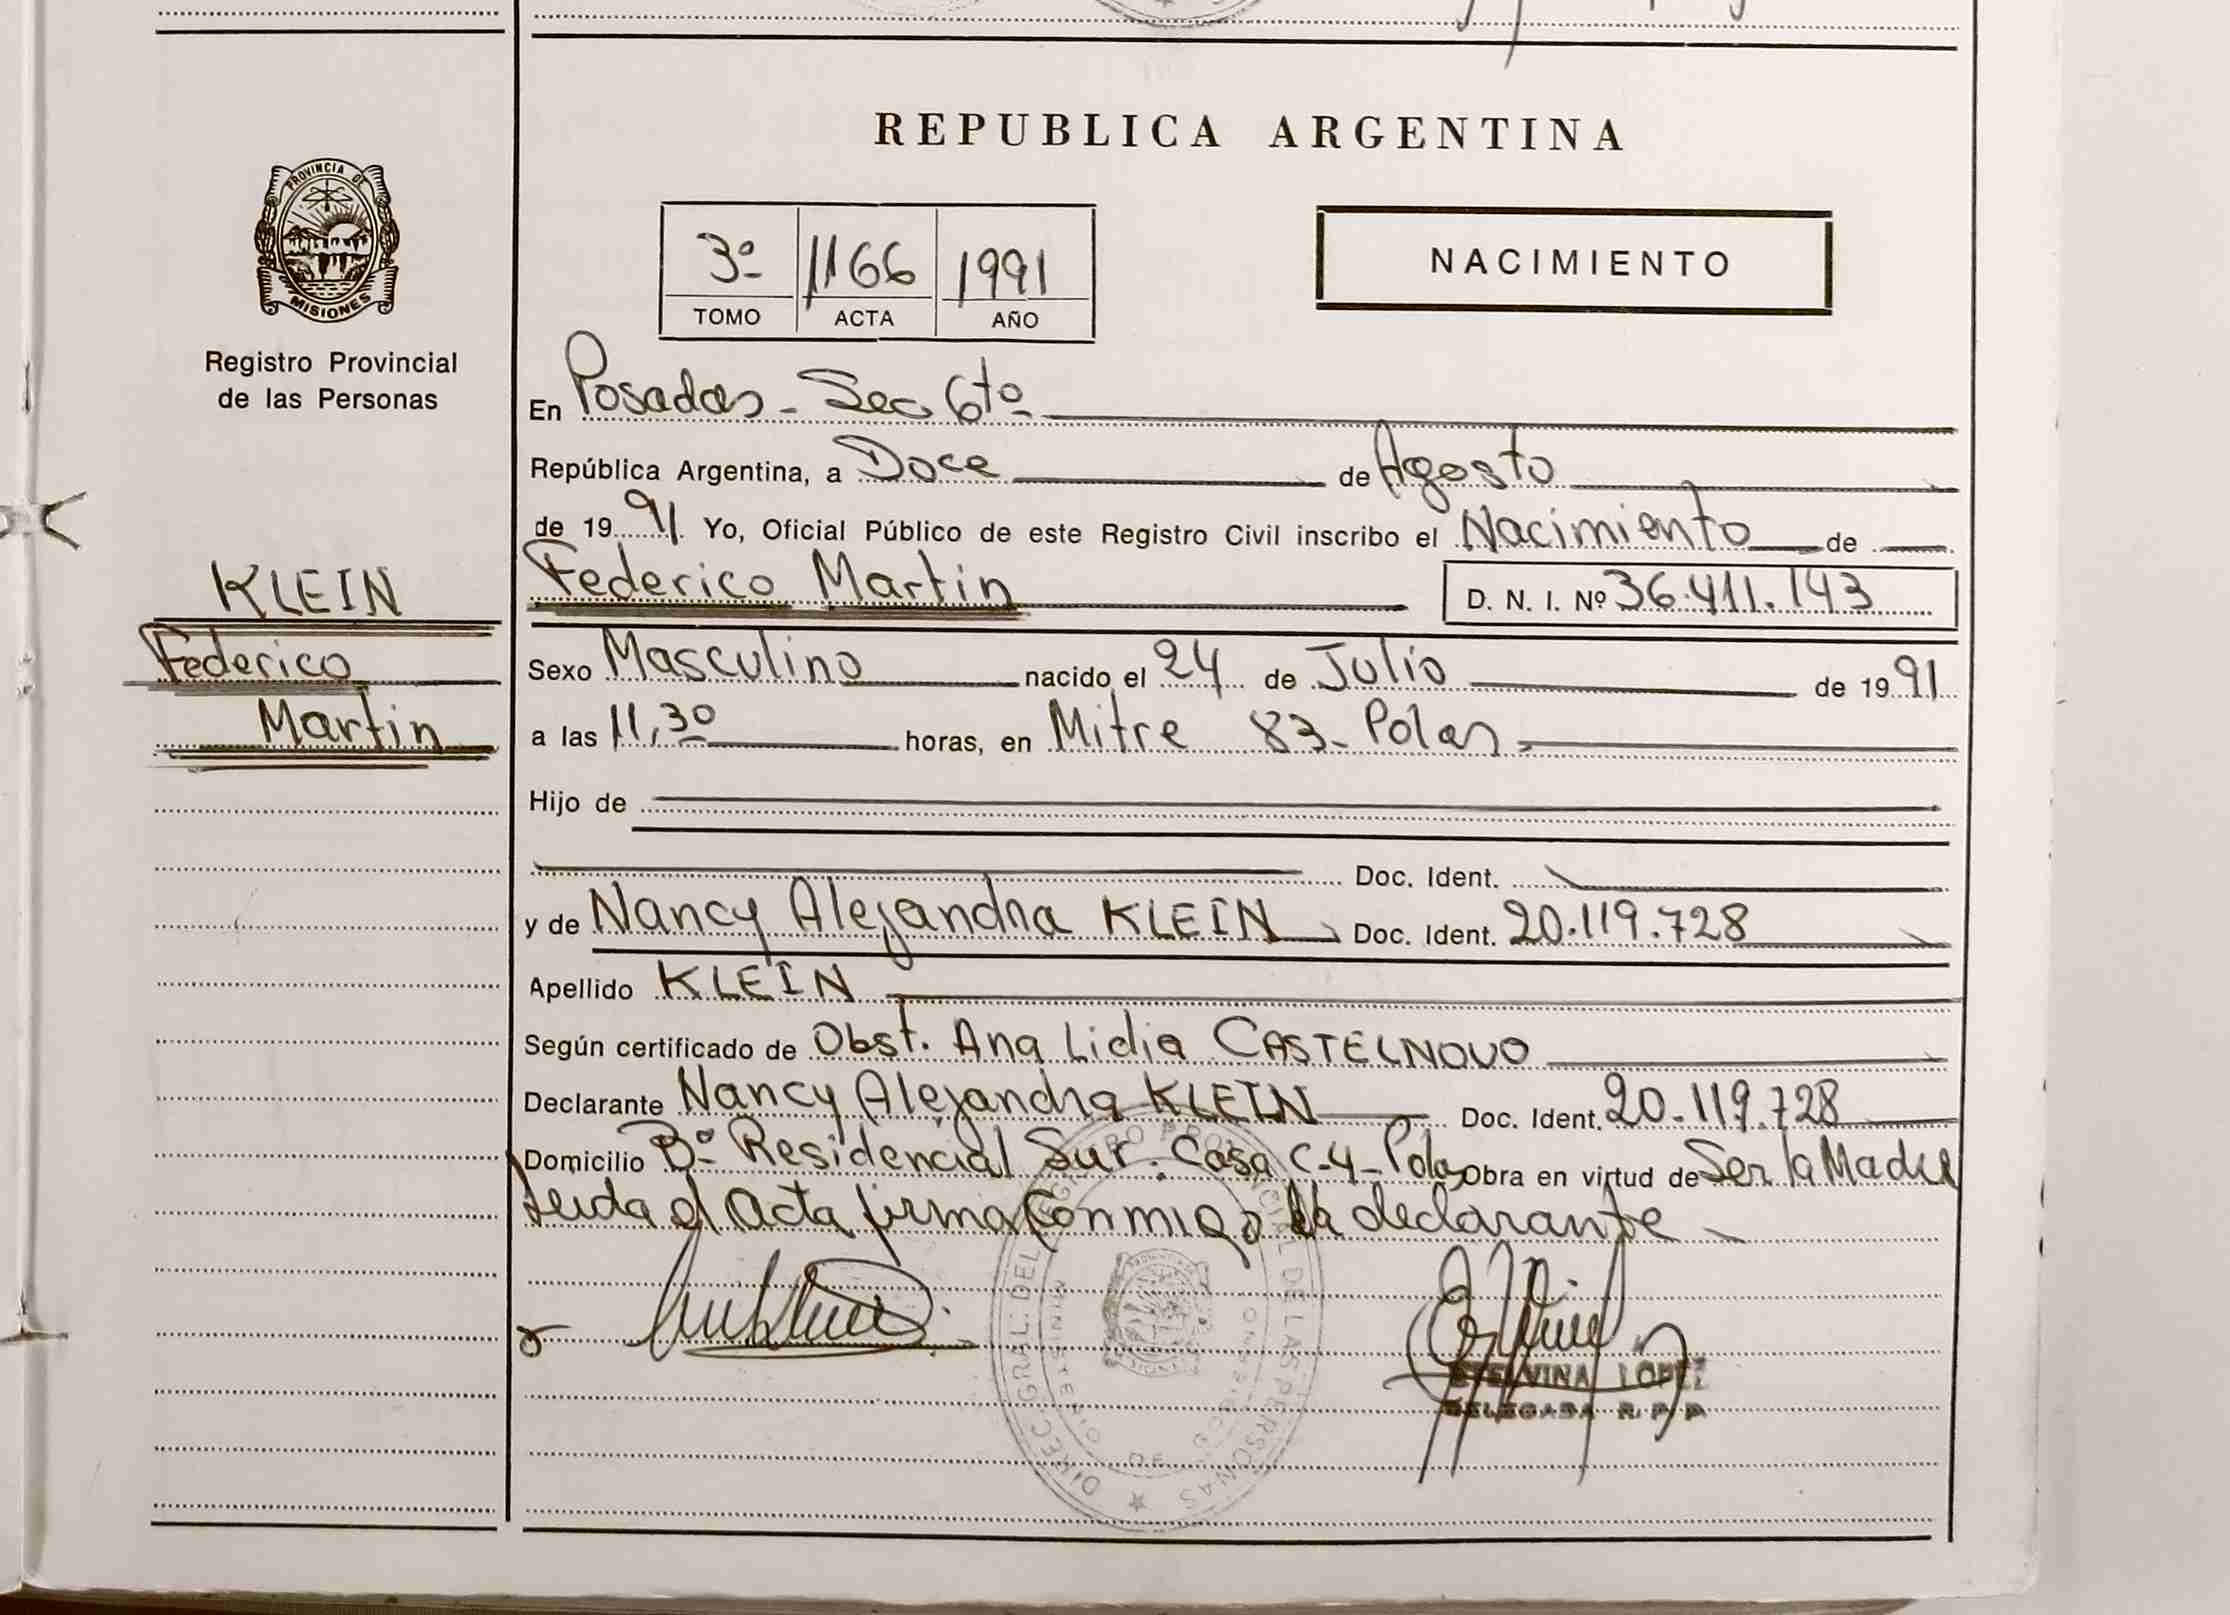 REPUBLICA ARGENTINA
PROVINCIA DE
MISIONES
Registro Provincial
de las Personas
3º 1166 1991
TOMO ACTA AÑO
NACIMIENTO
En Posadas - Sec 6ta
República Argentina, a Doce de Agosto
de 1991 Yo, Oficial Público de este Registro Civil inscribo el Nacimiento de
KLEIN
Federico
Martin
Federico Martin D. N. I. Nº 36.411.143
Sexo Masculino nacido el 24 de Julio de 1991
a las 11,30 horas, en Mitre 83 - Pdas
Hijo de
Doc. Ident.
y de Nancy Alejandra KLEIN Doc. Ident. 20.119.728
Apellido KLEIN
Según certificado de Obst. Ana Lidia CASTELNOVO
Declarante Nancy Alejandra KLEIN Doc. Ident. 20.119.728
Domicilio Bº Residencial Sur. Casa C-4 - Pdas Obra en virtud de Ser la Madre
Leida el Acta firma Conmigo la declarante
DIREC. GRAL. DEL REGISTRO PROVINCIAL DE LAS PERSONAS
MINISTERIO DE GOBIERNO
ETELVINA LOPEZ
DELEGADA R. P. P.